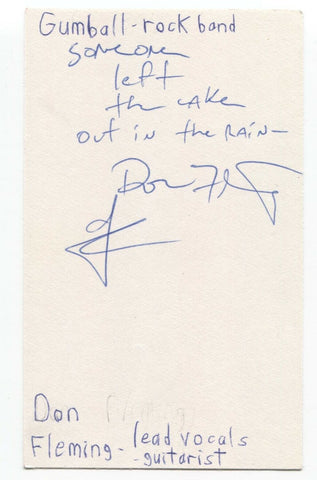 Gumball - rock band
someone
left
the cake
out in the RAIN -
Don Fleming
Don Fleming
Fleming - lead vocals
- guitarist